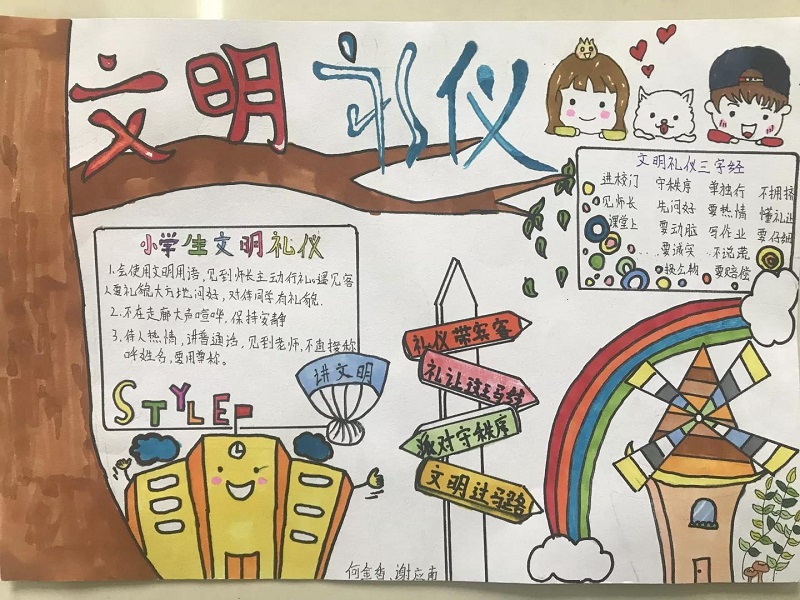 文明礼仪
文明礼仪三字经
进校门 守秩序 单独行 不拥挤
见师长 先问好 要热情 懂礼让
课堂上 要动脑 写作业 要仔细
要诚实 不说谎
要赔偿
小学生文明礼仪
1.会使用文明用语,见到师长主动行礼。遇见客
人要礼貌大方地问好,对待同学有礼貌.
2.不在走廊大声喧哗,保持安静
3.待人热情,讲普通话,见到老师,不直接称
呼姓名,要用尊称。
讲文明
STYLE
礼仪带宾客
礼让斑马线
派对守秩序
文明过马路